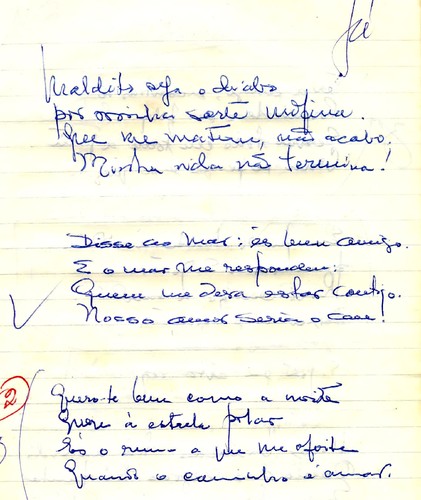 Já
Maldito seja o diabo
por minha sorte mofina.
Que me matem, não acabo.
Minha vida não termina!
Disse ao mar: és bom amigo.
E o mar me respondeu:
Quem me dera estar contigo.
Nosso amor seria o céu!
2
Quero-te bem como a noite
Quer à estrela polar
És o rumo a que me afoite
Quando o caminho é amar.